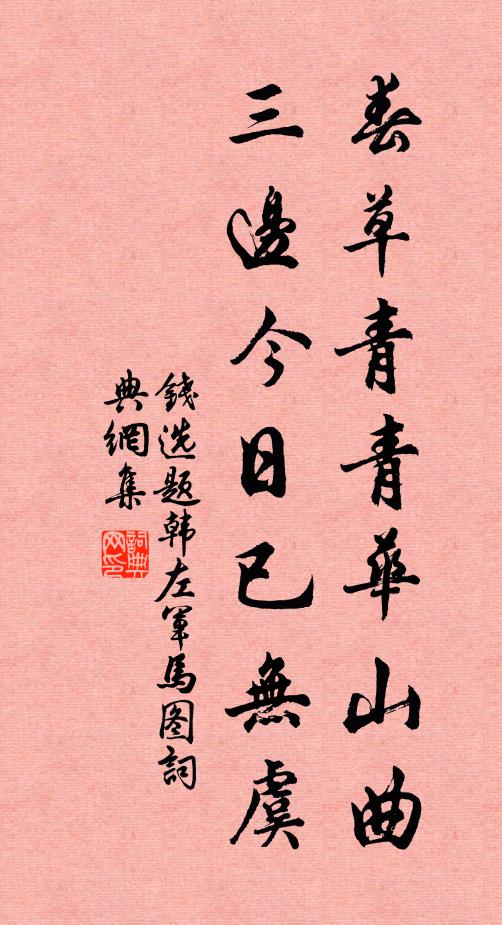 春草青青華山曲
三邊今日已無虞
錢选題韩左軍馬图詞
典網集
詞典网印